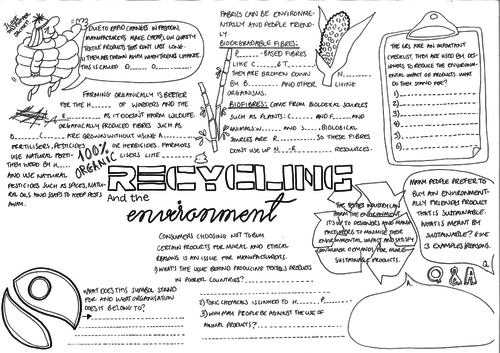 DUE TO RAPID CHANGES IN FASHION,
MANUFACTURERS MAKE CHEAP, LOW QUALITY
TEXTILE PRODUCTS THAT DON'T LAST LONG-
THEM ARE THROWN AWAY WHEN TRENDS CHANGE.
THIS IS CALLED O_____ O_____.
FABRICS CAN BE ENVIRONM-
ENTALLY AND PEOPLE FRIEND-
LY
BIODEGRADABLE FIBRES:
P_____-BASED FIBRES
LIKE C_____ & T_____
THEY ARE BROKEN DOWN N_____
BY B_____ AND OTHER LIVING
ORGANISMS.
BIOFIBRES: COME FROM BIOLOGICAL SOURCES
SUCH AS PLANTS: C_____ AND F_____ AND
ANIMALS: W_____ AND S_____. BIOLOGICAL
SOURCES ARE R_____ SO THESE FIBRES
DON'T USE UP N__-R_____ RESOURCES.
THE 6RS ARE AN IMPORTANT
CHECKLIST, THEY ARE USED BY DES-
IGNERS TO REDUCE THE ENVIRONM-
ENTAL IMPACT OF PRODUCTS. WHAT
DO THEY STAND FOR?
1)
2)
3)
4)
5)
6)
FARMING ORGANICALLY IS BETTER
FOR THE H_____ OF WORKERS AND THE
E_____ AS IT DOESN'T HARM WILDLIFE.
ORGANICALLY PRODUCED FIBRES SUCH AS
B_____, C_____ ARE GROWN WITHOUT USING A_____
FERTILISERS, PESTICIDES OR HERBICIDES. FARMERS
USE NATURAL FERTI- LISERS LIKE
THEY WEED BY H_____
AND USE NATURAL
PESTICIDES SUCH AS SPICES, NATU-
RAL OILS AND SOAPS TO KEEP PESTS
AWAY.
100%
ORGANIC
RECYCLING
And the
environment
THE TEXTILES INDUSTRY CAN
HARM THE ENVIRONMENT.
IT'S UP TO DESIGNERS AND MANU-
FACTURERS TO MINIMISE THEIR
ENVIRONMENTAL IMPACT AND SATISFY
CONSUMER DEMANDS FOR MORE
SUSTAINABLE PRODUCTS.
MANY PEOPLE PREFER TO
BUY AN ENVIRONMENT-
ALLY FRIENDLY PRODUCT
THAT IS SUSTAINABLE.
WHAT IS MEANT BY
SUSTAINABLE? GIVE
3 EXAMPLES/REASONS.
Q.
Q&A
A.
CONSUMERS CHOOSING NOT TO BUY
CERTAIN PRODUCTS FOR MORAL AND ETHICAL
REASONS IS AN ISSUE FOR MANUFACTURERS.
1) WHAT'S THE ISSUE BEHIND PRODUCING TEXTILES PRODUCTS
IN POORER COUNTRIES?
2) TOXIC CHEMICALS IS LINKED TO H_____ P_____
3) WHY MAY PEOPLE BE AGAINST THE USE OF
ANIMAL PRODUCTS?
WHAT DOES THIS SYMBOL STAND
FOR AND WHAT ORGANISATION
DOES IT BELONG TO?